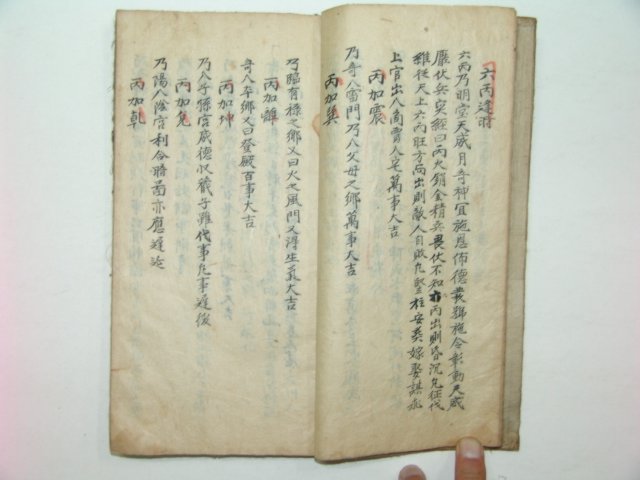 六丙逢時
六丙乃明堂天威月奇神宜施恩佈德發號施令彰動天威
伏安 經曰丙火銷金精兵畏伏不知 丙出則昏沉凡征伐
雖從天上六丙旺方局出則敵人自威凡 安葬嫁娶謀
上官出入商賈入宅萬事大吉
丙加震
乃奇入雷門乃入父母之鄉萬事大吉
丙加巽
乃臨有祿之鄉又曰火之風門又得生氣大吉
丙加離
奇入 鄉又曰登殿百事大吉
丙加坤
乃入子孫宮威德收藏子 代事凡事遲後
丙加兌
乃陽入陰宮利合 亦應遲
丙加乾